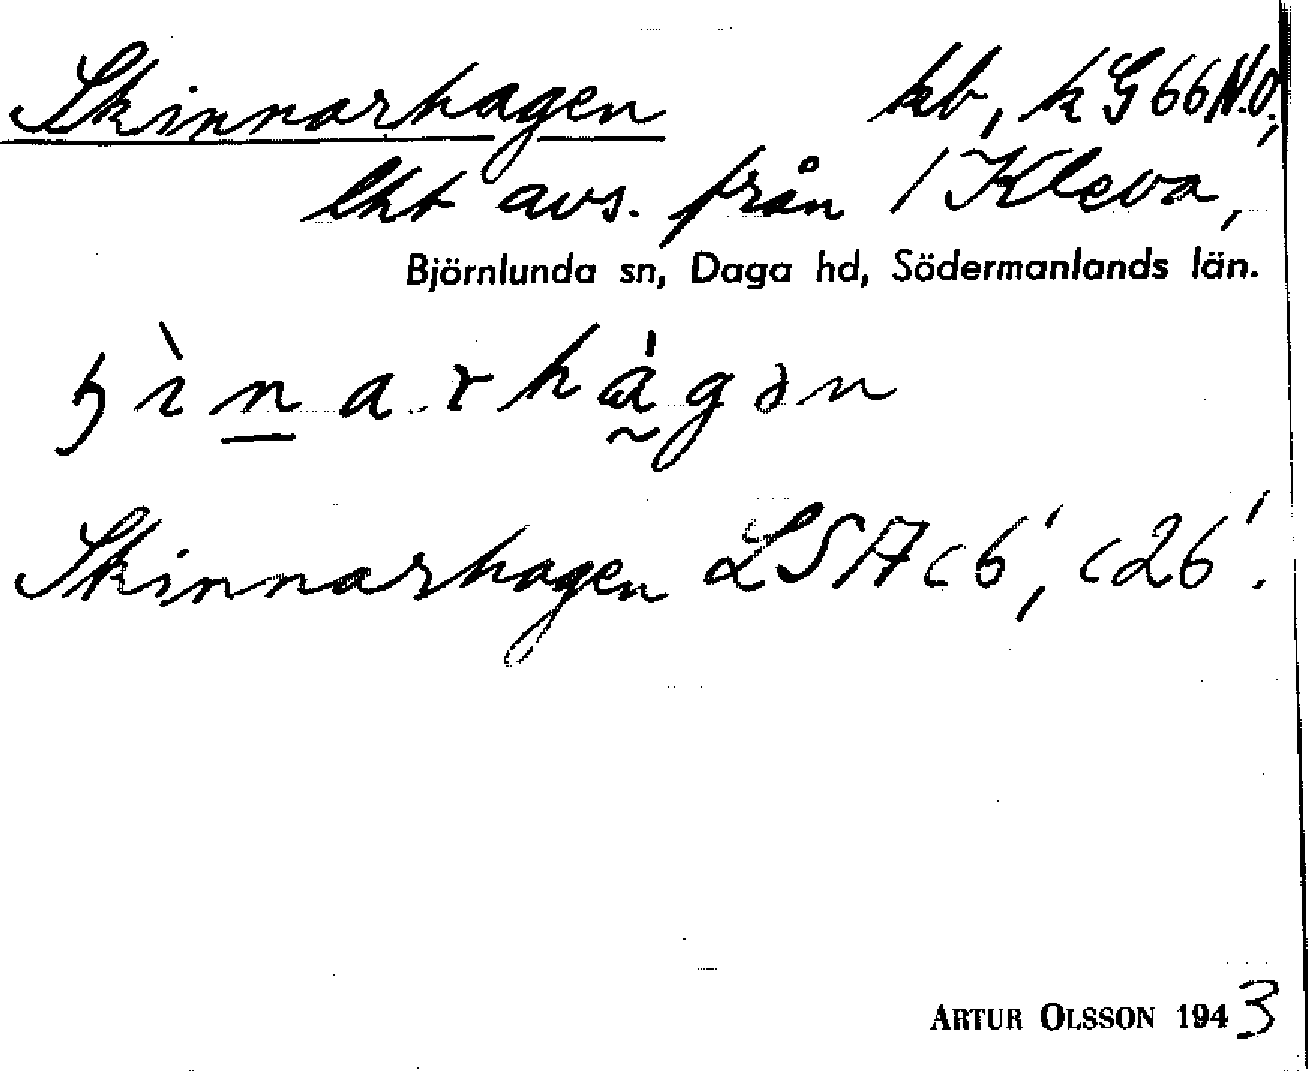 Skinnarhagen kb, k G 66 N.O.,
lht avs. från 1 Kleva,
Björnlunda sn, Daga hd, Södermanlands län.
Skinnarhagen LSA c 6', c 26'.
ARTUR OLSSON 1943